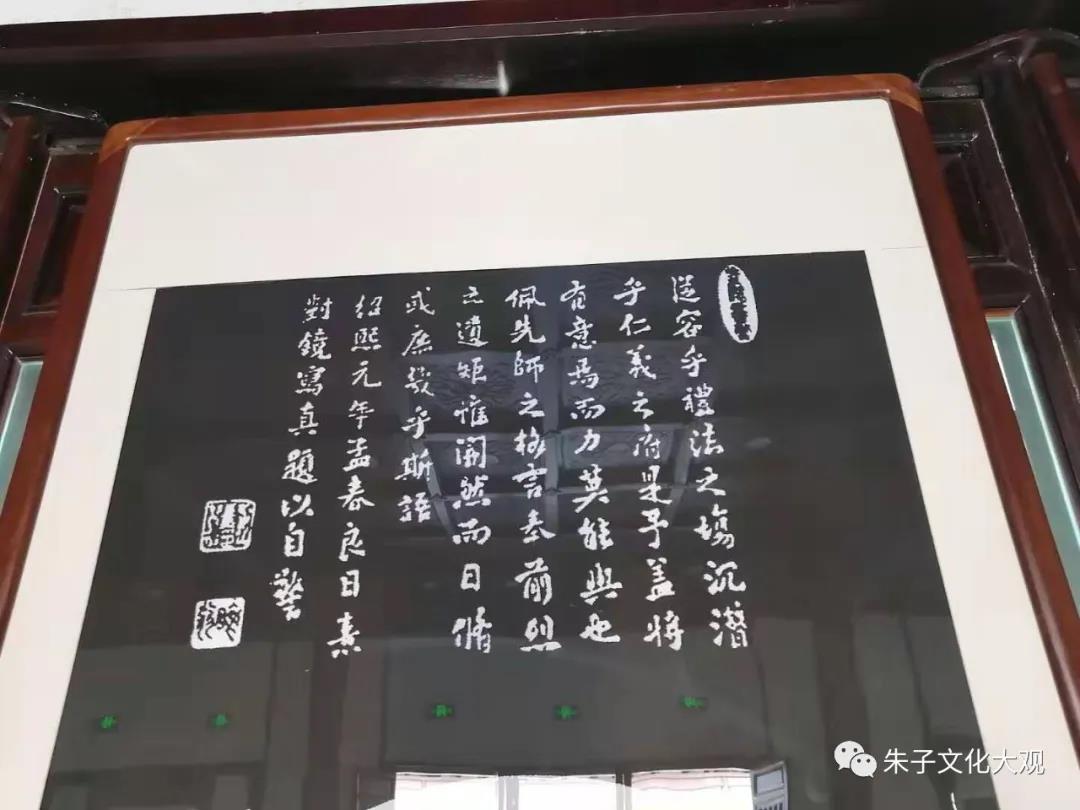 從容乎禮法之場沉潛
乎仁義之府是予蓋將
有意焉而力莫能與也
佩先師之格言奉前烈
之遺矩惟闇然而日脩
或庶幾乎斯語
紹熙元年孟春良日熹
對鏡寫真題以自警
朱子文化大观